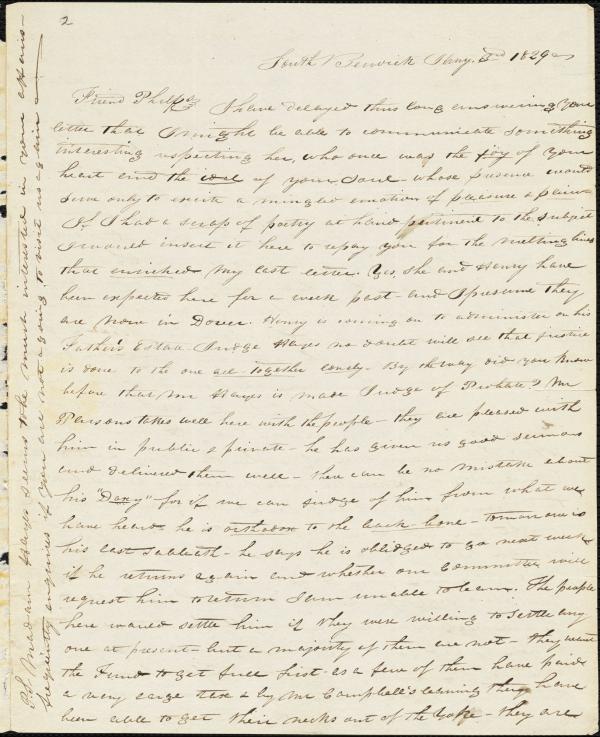 2
South Berwick Jany. 3rd 1829
Friend Phelps I have delayed thus long answering your
letter that I might be able to communicate something
interesting respecting her, who once was the joy of your
heart and the idol of your Soul whose presence would
serve only to excite a mingled emotion of pleasure & pain
If I had a scrap of poetry at hand pertinent to the subject
I would insert it here to repay you for the melting lines
that enriched my last letter. Yes, She and Henry have
been expected here for a week past - and I presume they
are now in Dover. Henry is coming on to administer on his
Father's Estate - Judge Hayes no doubt will see that justice
is done to the one all-together lovely - By the way did you know
before that Mr Hayes is made Judge of Probate? Mr
Parsons takes well here with the people - they are pleased with
him in public & private - he has given us good sermons
and delivered them well - there can be no mistake about
his "Doxy" - for if we can judge of him from what we
have heard he is orthodox to the back-bone - tomorrow is
his last Sabbath - he says he is obliged to go next week
if he returns again and whether our Committee will
request him to return I am unable to learn. The people
here would settle him if they were willing to settle any
one at present - but a majority of them are not - they want
the Fund to get full first - as a few of them have paid
a very large tax & by Mr Campbell's leaving they have
been able to get their necks out of the Yoke - they are
P.S. Madam Hayes seems to be much interested in your affairs -
frequently enquires if you are not a going to visit us again